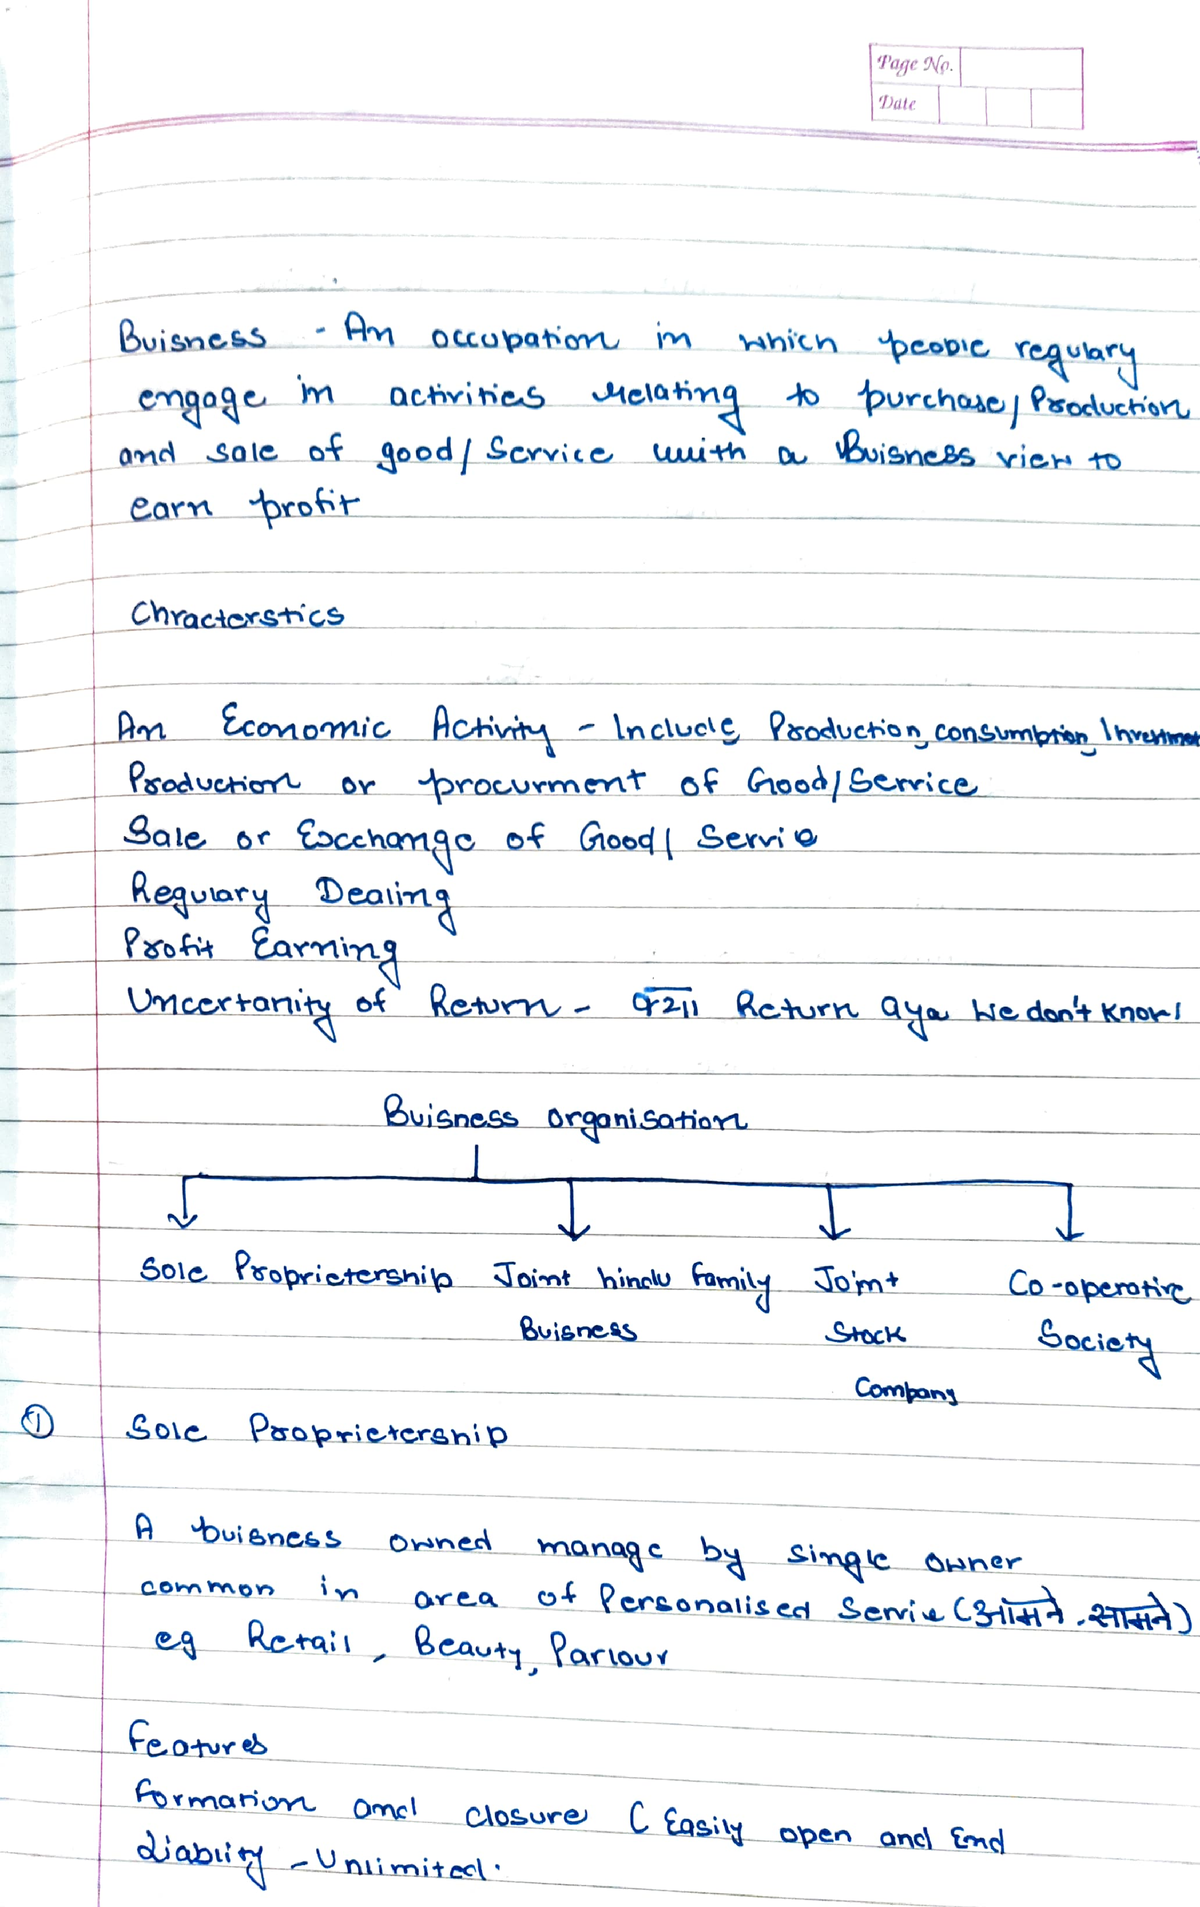 Page No.
Date
Buisness - An occupation in which people regulary
engage in activities relating to purchase/Production
and sale of good/Service with a Buisness view to
earn profit
Chracterstics
An Economic Activity - Include Production, consumption, Investment
Production or procurment of Good/Service
Sale or Excchange of Good/Servie
Regulary Dealing
Profit Earning
Uncertanity of Return - Return aya we don't know
Buisness organisation
Sole Proprietership Joint hindu family Joint Co-operative
Buisness Stock Society
Company
① Sole Proprietership
A buisness owned manage by single owner
common in area of Personalised Servie (आमने-सामने)
eg Retail, Beauty, Parlour
Features
Formation and closure ( Easily open and End
Liabliity - Unlimited.